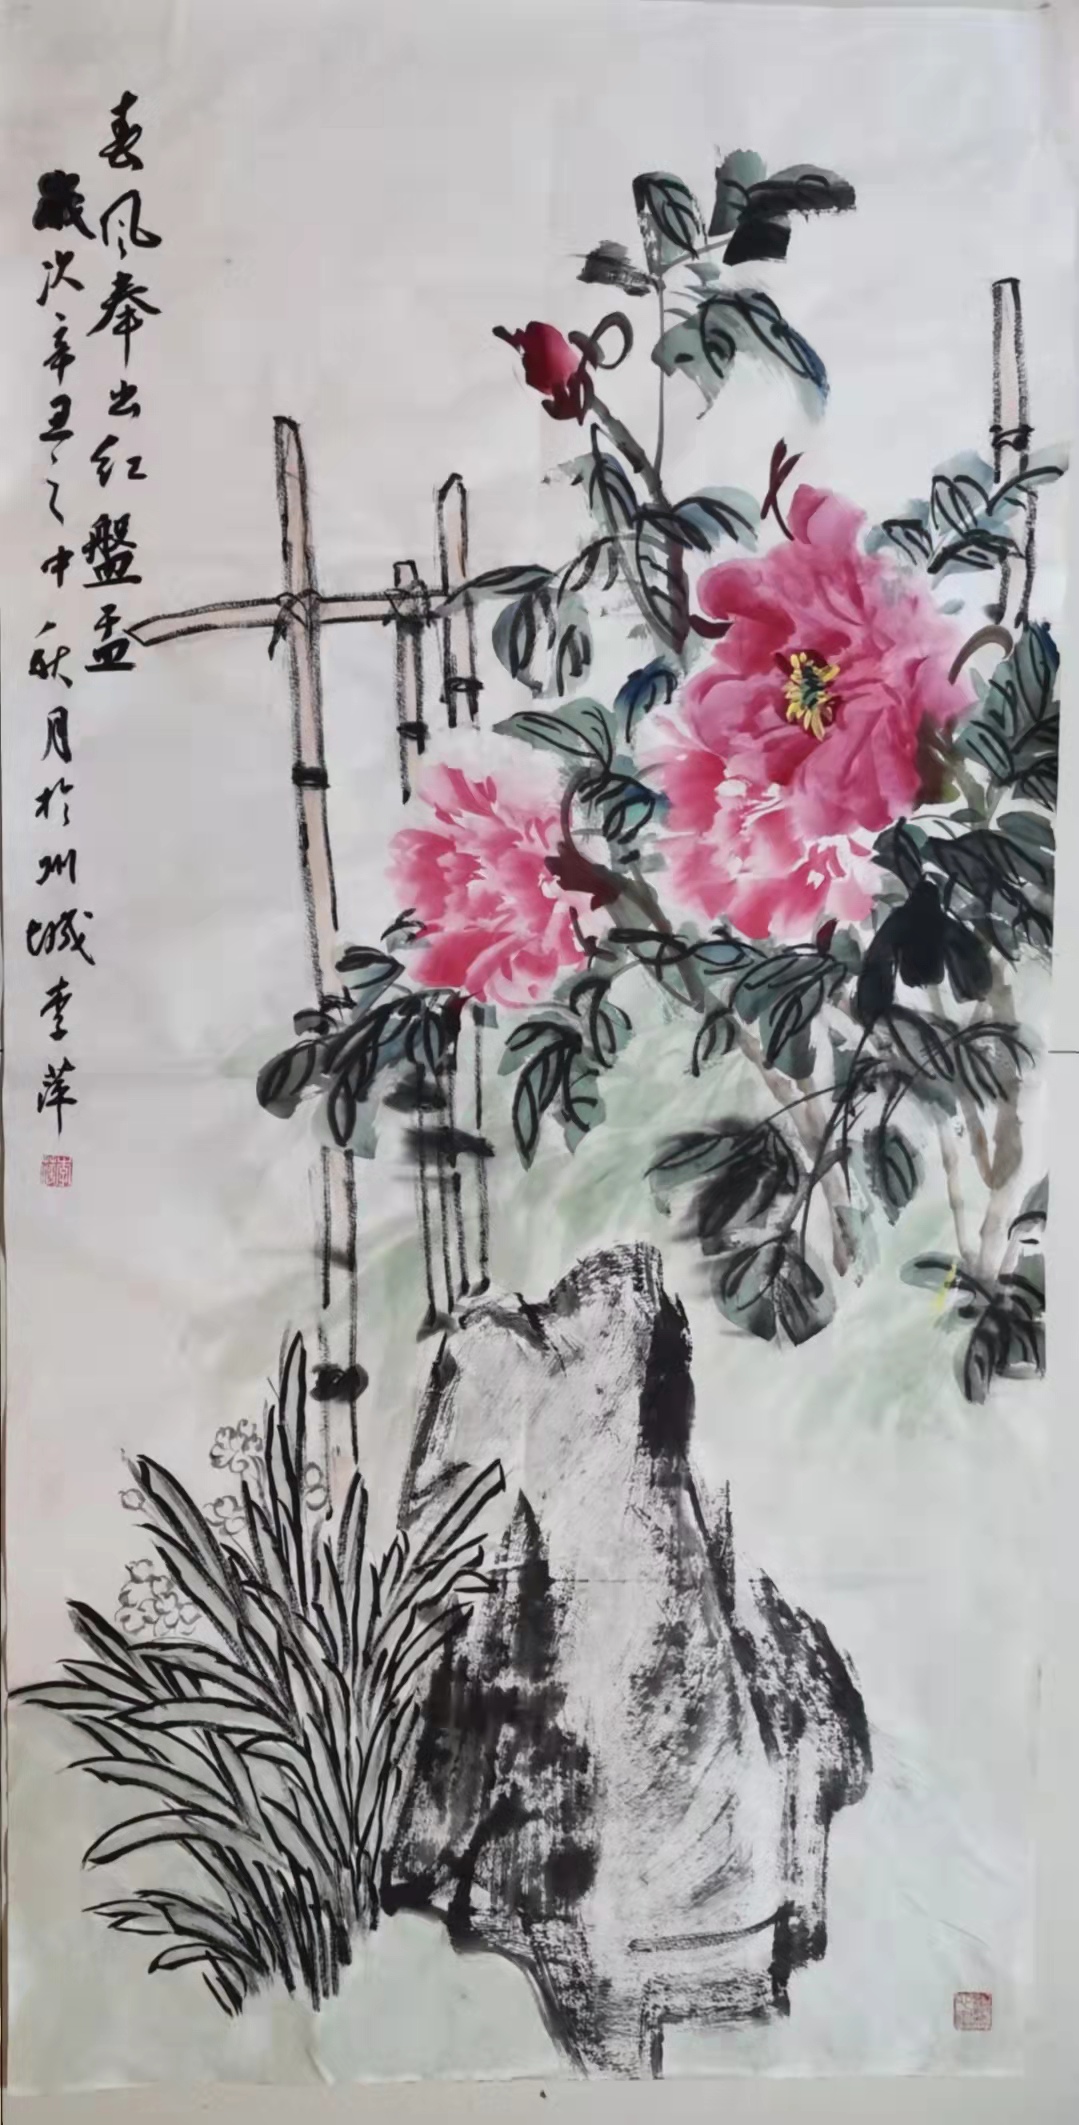 春风奉出红盤盂
歲次辛丑之中秋月於州城李萍